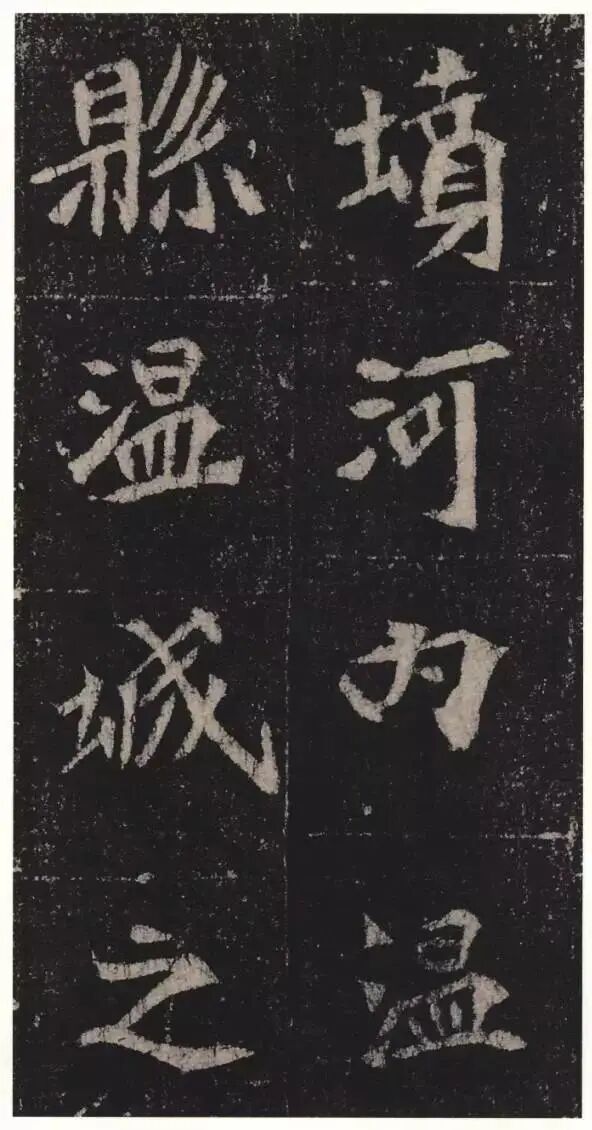 墳河内温
縣温城之